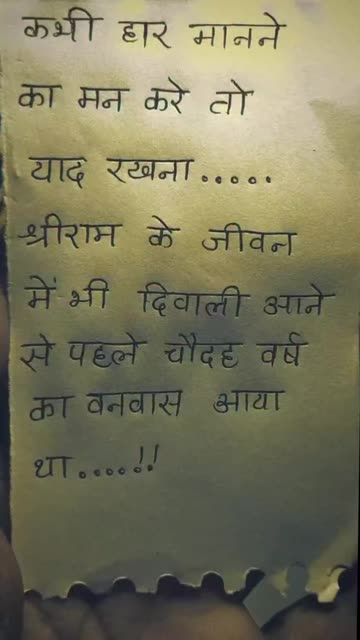 कभी हार मानने
का मन करे तो
याद रखना.....
श्रीराम के जीवन
में भी दिवाली आने
से पहले चौदह वर्ष
का वनवास आया
था.....!!